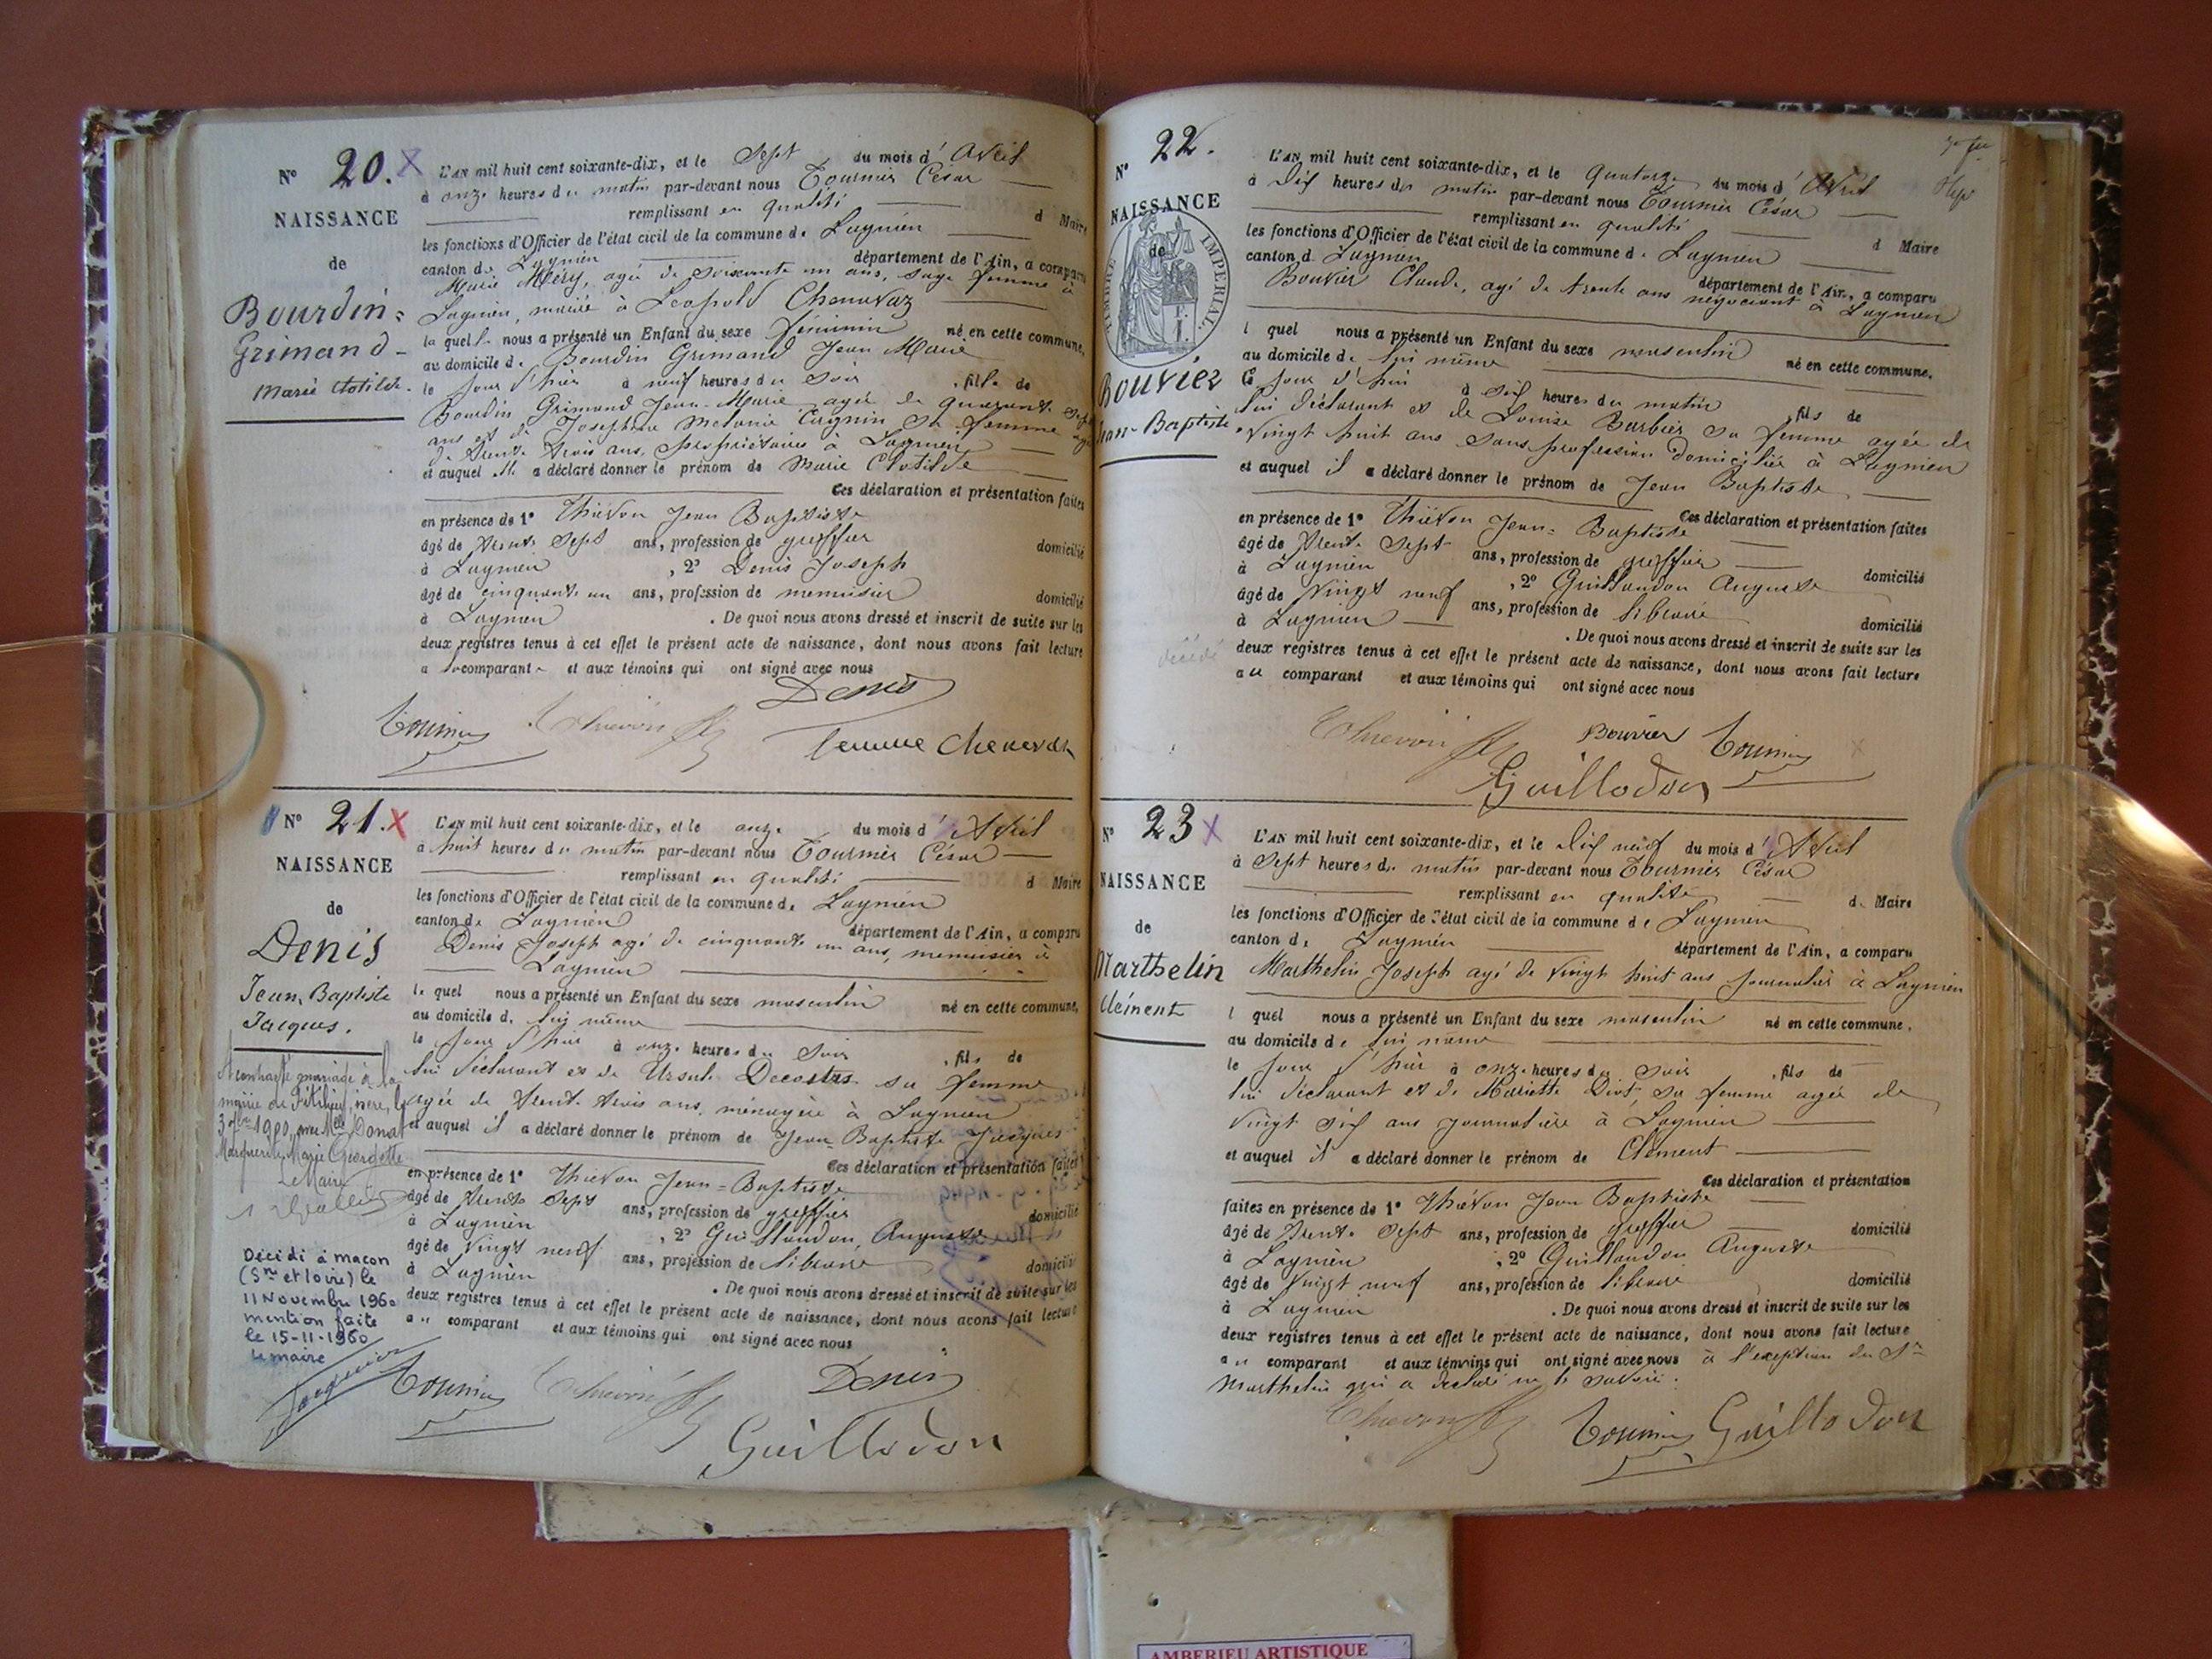 N° 20. X
NAISSANCE
de
Bourdin=
Grimand-
Marie Clotilde.
L'AN mil huit cent soixante-dix, et le Sept du mois d'Avril
à onze heures du matin par-devant nous Tournier César
remplissant en qualité d Maire
les fonctions d'Officier de l'état civil de la commune de Lagnieu
canton de Lagnieu département de l'Ain, a comparu
Marie Méry, agée de soixante un ans, sage femme à
Lagnieu, mariée à Léopold Chenavaz
la quelle nous a présenté un Enfant du sexe féminin né en cette commune,
au domicile de Bourdin Grimand Jean Marie
le jour d'hier à neuf heures du soir , fille de
Bourdin Grimand Jean-Marie agée de quarante sept
ans et de Josephine Melanie Cagnin sa femme agée
de trente trois ans, propriétaires à Lagnieu
et auquel elle a déclaré donner le prénom de Marie Clotilde
Ces déclaration et présentation faites
en présence de 1° Thiévon Jean Baptiste
âgé de trente sept ans, profession de greffier domicilié
à Lagnieu , 2° Denis Joseph
âgé de cinquante un ans, profession de menuisier domicilié
à Lagnieu . De quoi nous avons dressé et inscrit de suite sur les
deux registres tenus à cet effet le présent acte de naissance, dont nous avons fait lecture
a la comparante et aux témoins qui ont signé avec nous
Denis
Tournier Thievon femme Chenavaz
N° 21. X
NAISSANCE
de
Denis
Jean, Baptiste
Jacques.
A contracté mariage à la
mairie de Pithiviers, le
3 1900, avec Mlle Donat
Marguerite Marie Georgette
Le Maire
Décédé à macon
(Sne et loire) le
11 Novembre 1960
mention faite
le 15-11-1960
le maire
L'AN mil huit cent soixante-dix, et le onze du mois d'Avril
à huit heures du matin par-devant nous Tournier César
remplissant en qualité d Maire
les fonctions d'Officier de l'état civil de la commune de Lagnieu
canton de Lagnieu département de l'Ain, a comparu
Denis Joseph agé de cinquante un ans, menuisier à
Lagnieu
le quel nous a présenté un Enfant du sexe masculin né en cette commune,
au domicile de lui même
le jour d'hier à onze heures du soir , fils de
lui déclarant et de Ursule Decostes sa femme
agée de trente trois ans, ménagère à Lagnieu
et auquel il a déclaré donner le prénom de Jean-Baptiste Jacques
Ces déclaration et présentation faites
en présence de 1° Thiévon Jean=Baptiste
âgé de trente sept ans, profession de greffier domicilié
à Lagnieu , 2° Guillaudon, Auguste
âgé de vingt neuf ans, profession de libraire domicilié
à Lagnieu . De quoi nous avons dressé et inscrit de suite sur les
deux registres tenus à cet effet le présent acte de naissance, dont nous avons fait lecture
au comparant et aux témoins qui ont signé avec nous
Tournier Thievon Denis
Guillodon
N° 22.
NAISSANCE
de
TIMBRE IMPERIAL
Bouvier
Jean-Baptiste
décédé
L'AN mil huit cent soixante-dix, et le quatorze du mois d'Avril
à dix heures du matin par-devant nous Tournier César
remplissant en qualité d Maire
les fonctions d'Officier de l'état civil de la commune de Lagnieu
canton d Lagnieu département de l'Ain, a comparu
Bouvier Claude, agé de trente ans négociant à Lagnieu
l quel nous a présenté un Enfant du sexe masculin né en cette commune.
au domicile de lui même
le jour d'hui à six heures du matin , fils de
lui déclarant et de Louise Barbier sa femme agée de
vingt huit ans sans profession domiciliée à Lagnieu
et auquel il a déclaré donner le prénom de Jean Baptiste
Ces déclaration et présentation faites
en présence de 1° Thiévon Jean=Baptiste
âgé de trente sept ans, profession de greffier domicilié
à Lagnieu , 2° Guillaudon Auguste
âgé de vingt neuf ans, profession de libraire domicilié
à Lagnieu . De quoi nous avons dressé et inscrit de suite sur les
deux registres tenus à cet effet le présent acte de naissance, dont nous avons fait lecture
au comparant et aux témoins qui ont signé avec nous
Thievon Bouvier Tournier
Guillodon
N° 23 X
NAISSANCE
de
Marthelin
Clément
L'AN mil huit cent soixante-dix, et le dix neuf du mois d'Avril
à sept heures du matin par-devant nous Tournier César
remplissant en qualité de Maire
les fonctions d'Officier de l'état civil de la commune de Lagnieu
canton de Lagnieu département de l'Ain, a comparu
Marthelin Joseph agé de vingt huit ans journalier à Lagnieu
l quel nous a présenté un Enfant du sexe masculin né en cette commune.
au domicile de lui même
le jour d'hier à onze heures du soir , fils de
lui déclarant et de Mariette Diot, sa femme agée de
vingt six ans journalière à Lagnieu
et auquel il a déclaré donner le prénom de Clément
Ces déclaration et présentation
faites en présence de 1° Thiévon Jean Baptiste
âgé de trente sept ans, profession de greffier domicilié
à Lagnieu , 2° Guillaudon Auguste
âgé de vingt neuf ans, profession de libraire domicilié
à Lagnieu . De quoi nous avons dressé et inscrit de suite sur les
deux registres tenus à cet effet le présent acte de naissance, dont nous avons fait lecture
au comparant et aux témoins qui ont signé avec nous à l'exception du Sr
Marthelin qui a déclaré ne le savoir.
Thievon Tournier Guillodon
AMBERIEU ARTISTIQUE